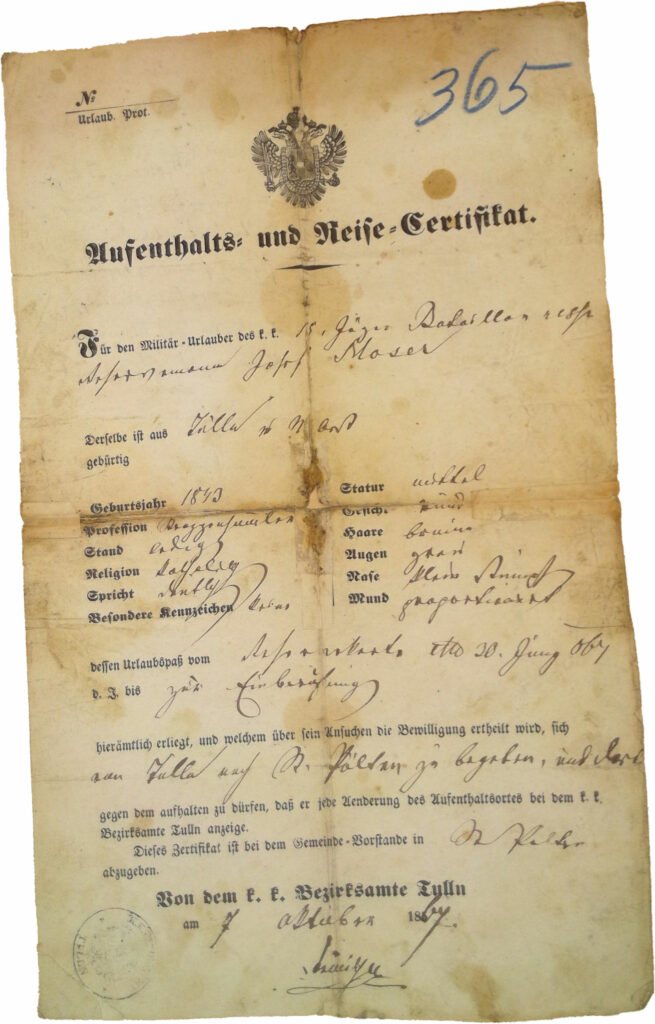 365
№
Urlaub. Prot.
Aufenthalts- und Reise-Certifikat.
Für den Militär-Urlauber des k. k. Jäger Bataillon
Reservemann Josef Moser
Derselbe ist aus Tulln
gebürtig
Geburtsjahr 1843
Profession
Stand ledig
Religion katholisch
Spricht deutsch
Besondere Kennzeichen keine
Statur mittel
Gesicht rund
Haare braun
Augen grau
Nase klein stumpf
Mund proportionirt
dessen Urlaubspaß vom Reservekarte dto 30. Juny 867
d. J. bis zur Einberufung
hierämtlich erliegt, und welchem über sein Ansuchen die Bewilligung ertheilt wird, sich
von Tulln nach St. Pölten zu begeben, und dort
gegen dem aufhalten zu dürfen, daß er jede Aenderung des Aufenthaltsortes bei dem k. k.
Bezirksamte Tulln anzeige.
Dieses Zertifikat ist bei dem Gemeinde-Vorstande in St Pölten
abzugeben.
Von dem k. k. Bezirksamte Tylln
am 7 Oktober 1867.